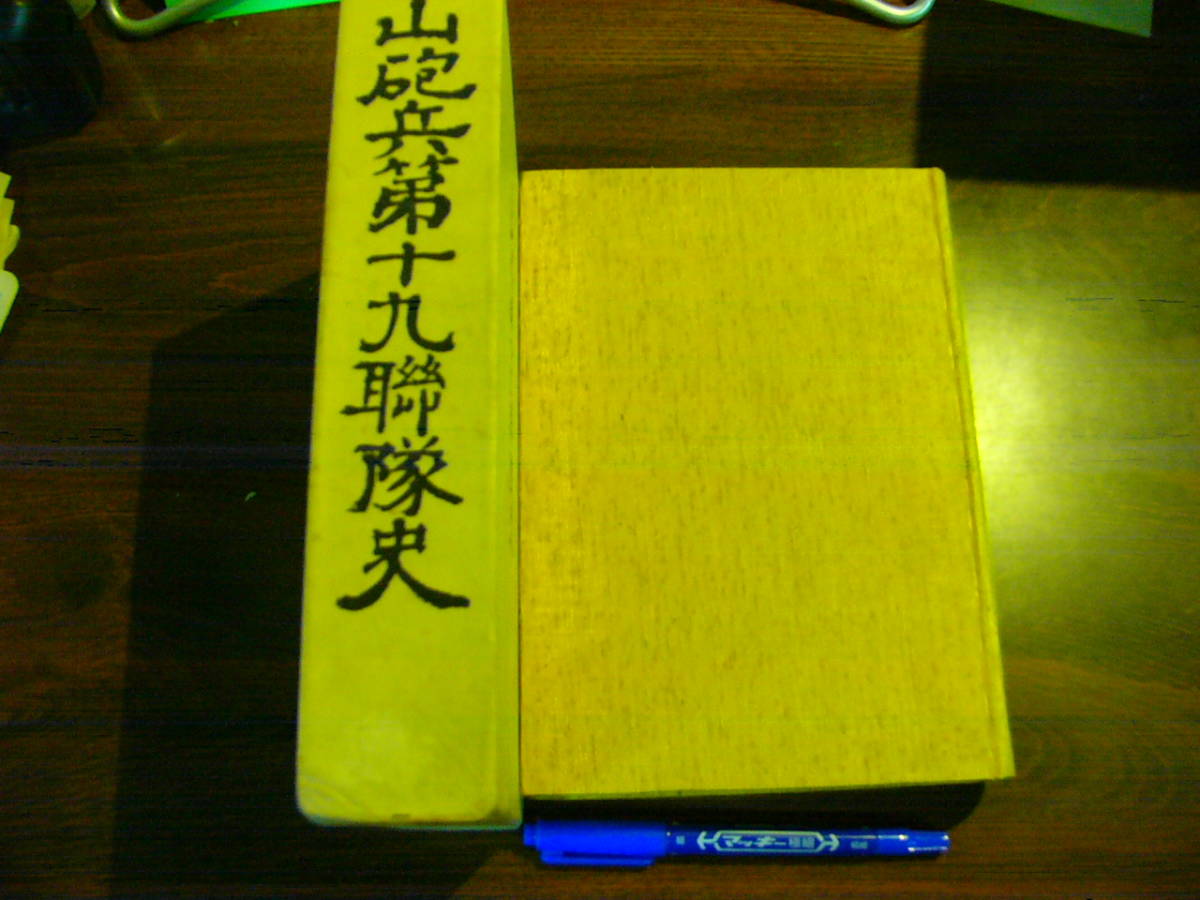 山砲兵第十九聯隊史
マッキー極細